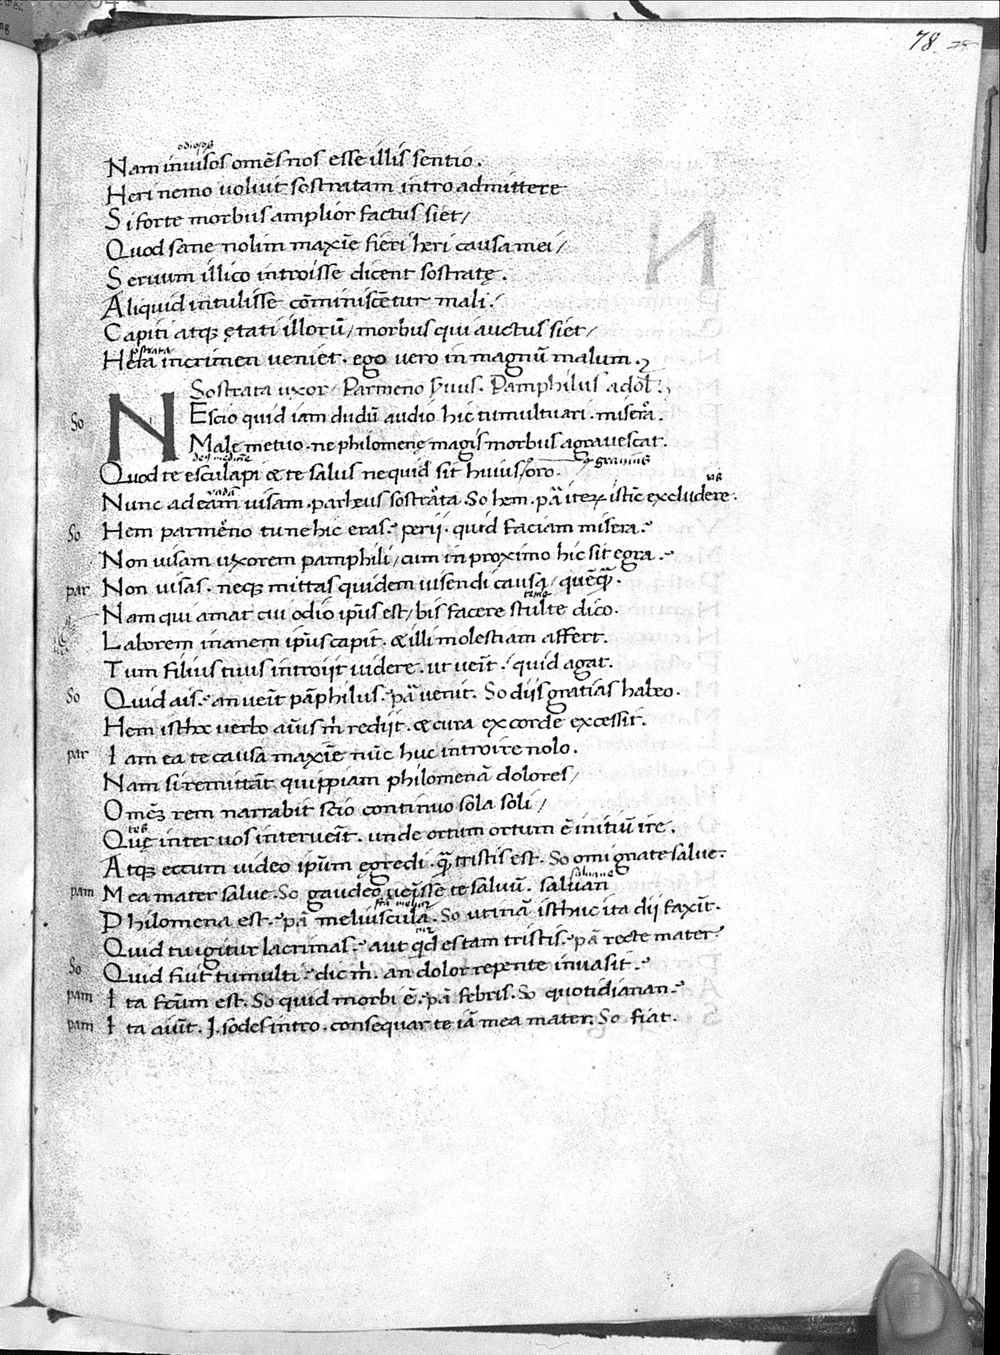 78
odiosos
Nam inuisos omẽs nos esse illis sentio.
Heri nemo uoluit sostratam intro admittere
Si forte morbus amplior factus siet/
Quod sane nolim maxiẽ fieri heri causa mei/
Seruum illico introisse dicent sostratę.
Aliquid intulisse cõminiscẽtur mali.
Capiti atqꝫ ętati illorũ/ morbus qui auctus siet/
sostrata
Hera incrimen ueniet. ego uero in magnũ malum.
Sostrata uxor. Parmeno s̃uus. Pamphilus adol̃.
So NEscio quid iam dudũ audio hic tumultuari. misera.
Male metuo. ne philomenę magis morbus agrauescat.
Quod te esculapi & te salus nequid sit huius/oro.
uadã
Nunc ad eam uisam. parheus sostrata. So hem. pã iteꝝ istĩc excludere.
So Hem parmeno tu ne hic eras. perii. quid faciam misera.
Non uisam uxorem pamphili/ cum in proximo hic sit egra.
par Non uisas. neqꝫ mittas quidem uisendi causa/ quẽq̃.
Nam qui amat cui odio ip̃us est/ bis facere stulte dico.
Laborem inanem ip̃us capit. & illi molestiam affert.
Tum filius tuus introijt uidere. ut ueñt. quid agat.
So Quid ais. an ueñt pãphilus. pã uenit. So diis gratias habeo.
Hem isthoc uerbo aĩus m̃ redijt. & cura ex corde excessit.
par Iam ea te causa maxiẽ nũc huc introire nolo.
Nam si remittãt quippiam philomenã dolores/
Omẽꝫ rem narrabit scio continuo sola soli/
Quę inter uos interueñt. unde ortum ortum ẽ initiũ ire.
Atqꝫ eccum uideo ip̃um egredi. q̃ tristis est. So o mi gnate salue.
pam Mea mater salue. So gaudeo ueĩsse te saluũ. saluan
Philomena est. pã meliuscula. So utinã isthuc ita dii faxĩt.
Quid tu igitur lacrimas. aut qd es tam tristis. pã recte mater.
So Quid fiut tumulti. dic m̃. an dolor repente inuasit.
pam Ita fc̃um est. So quid morbi ẽ. pã febris. So quotidianan.
pam Ita aiũt. I. sodes intro. consequar te iã mea mater. So fiat.